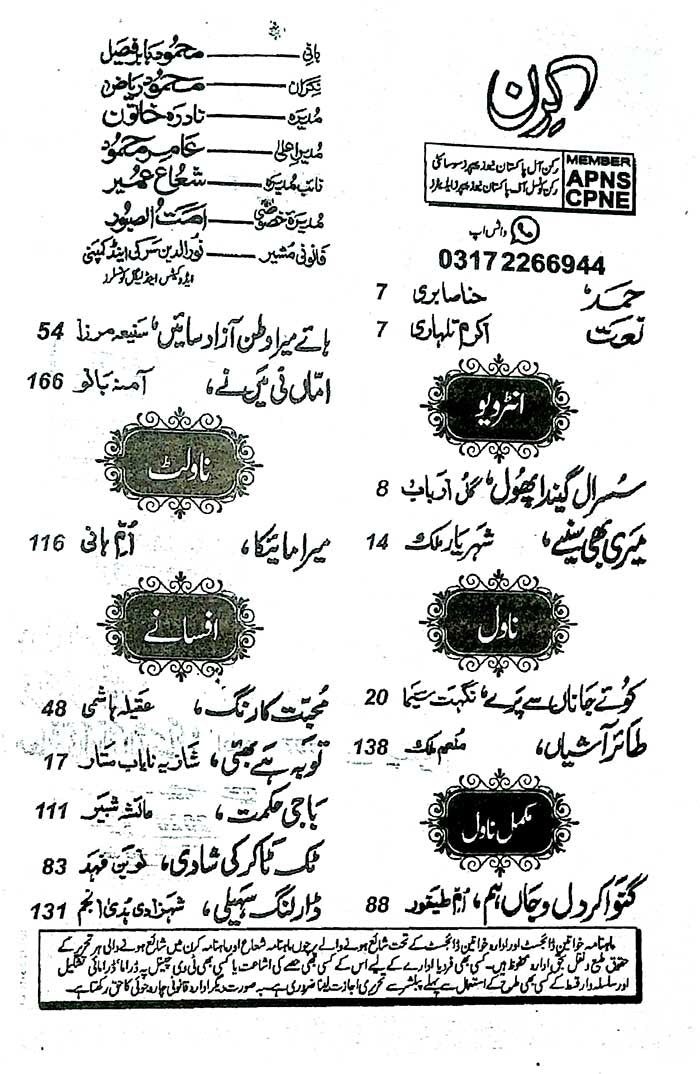 کرن
MEMBER
APNS
CPNE
رکن آل پاکستان نیوز پیپرز سوسائٹی
رکن کونسل آف پاکستان نیوز پیپرز ایڈیٹرز
واٹس اپ
0317 2266944
حمد، حنا صابری 7
نعت اکرم تلہاری 7
انٹرویو
سسرال گیندا پھول، گل ارباب 8
میری بھی سنیے، شہریار ملک 14
ناول
کوئے جاناں سے پرے، نگہت سیما 20
طائر آشیاں، منعم ملک 138
مکمل ناول
گنوا کر دل و جاں ہم، ام طیفور 88
بانی محمود بابر فیصل
نگران محمود ریاض
مدیرہ نادرہ خاتون
مدیر اعلیٰ عامر محمود
نائب مدیرہ شعاع عمیر
مدیرہ خصوصی امت الصبور
قانونی مشیر نور الدین سرکی اینڈ کمپنی
ایڈوکیٹس اینڈ لیگل کونسلرز
ہائے میرا وطن آزاد سائیں، سنیعہ مرزا 54
اماں نی میں نے، آمنہ بانو 166
ناولٹ
میرا مائیکا، ام ہانی 116
افسانے
محبت کا رنگ، عقیلہ ہاشمی 48
توبہ ہے بھئی، شازیہ نایاب ستار 17
باجی حکمت، عائشہ شبیر 111
ٹک ٹاکر کی شادی، نوین فہد 83
ڈارلنگ سہیلی، شہزادی ہدیٰ انجم 131
ماہنامہ خواتین ڈائجسٹ اور ادارہ خواتین ڈائجسٹ کے تحت شائع ہونے والے پرچوں ماہنامہ شعاع اور ماہنامہ کرن میں شائع ہونے والی ہر تحریر کے
حقوق طبع و نقل بحق ادارہ محفوظ ہیں۔ کسی بھی فرد یا ادارے کے لیے اس کے کسی بھی حصے کی اشاعت یا کسی بھی ٹی وی چینل پہ ڈراما، ڈرامائی تشکیل
اور سلسلہ وار قسط کے کسی بھی طرح کے استعمال سے پہلے پبلشر سے تحریری اجازت لینا ضروری ہے۔ بہ صورت دیگر ادارہ قانونی چارہ جوئی کا حق رکھتا ہے۔